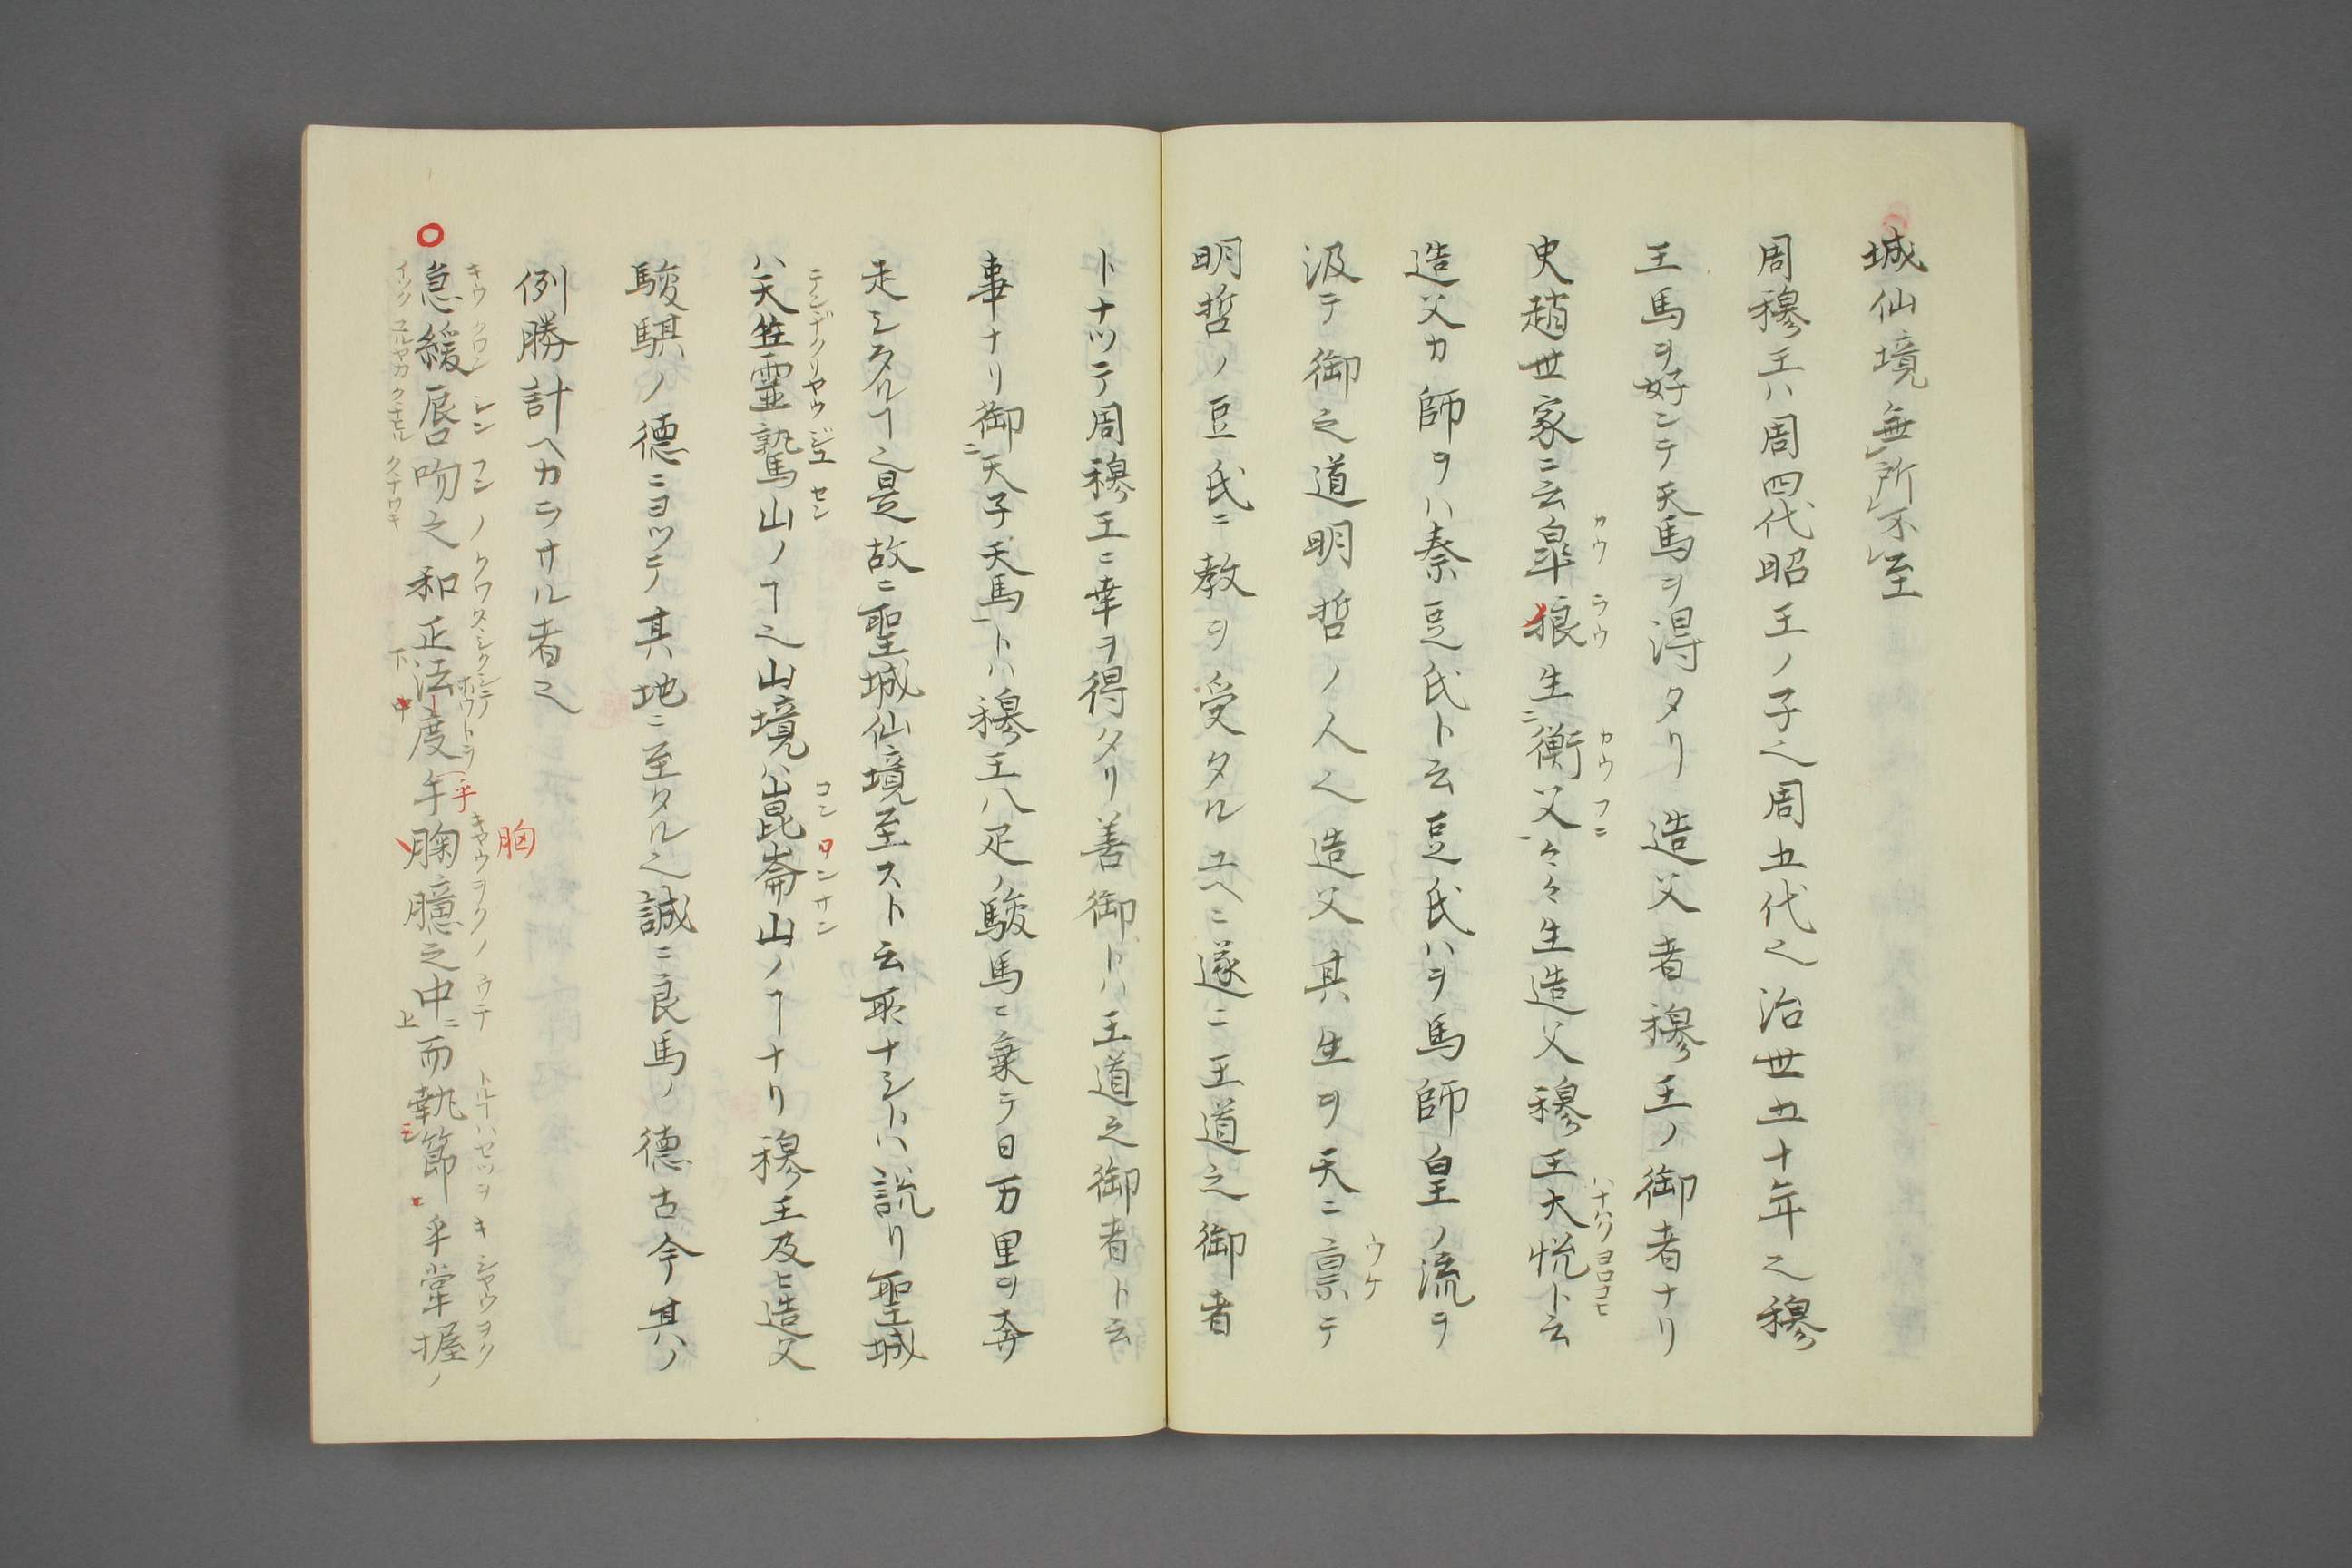 城仙境無㆑所㆑不㆑至
周穆王ハ周四代昭王ノ子也周五代也治世五十年也穆
王馬ヲ好ンテ天馬ヲ得タリ造父者穆王ノ御者ナリ
史趙世家ニ云皐狼生㆓衡父㆒々々生造父穆王大悦ト云
造父カ師ヲハ泰豆氏ト云豆氏ハヲ馬師皇ノ流ヲ
汲テ御之道明哲ノ人也造父其生ヲ天ニ禀テ
明哲ノ豆氏ニ教ヲ受タルユヘニ遂ニ王道之御者
トナツテ周穆王ニ幸ヲ得タリ善御トハ王道之御者ト云
事ナリ御㆓天子天馬㆒トハ穆王八疋ノ駿馬ニ乗テ日万里ヲ奔
走シタルヿ也是故ニ聖城仙境至ストム云所ナシトハ説リ聖城
ハ天笠霊鷲山ノヿ也山境ハ崑崙山ノヿナリ穆王及ヒ造父
駿騏ノ徳ニヨツテ其地ニ至タル也誠ニ良馬ノ徳古今其ノ
例勝計ヘカラサル者也
急緩唇吻之和正法度乎胸臆之中而執節乎掌握ノ